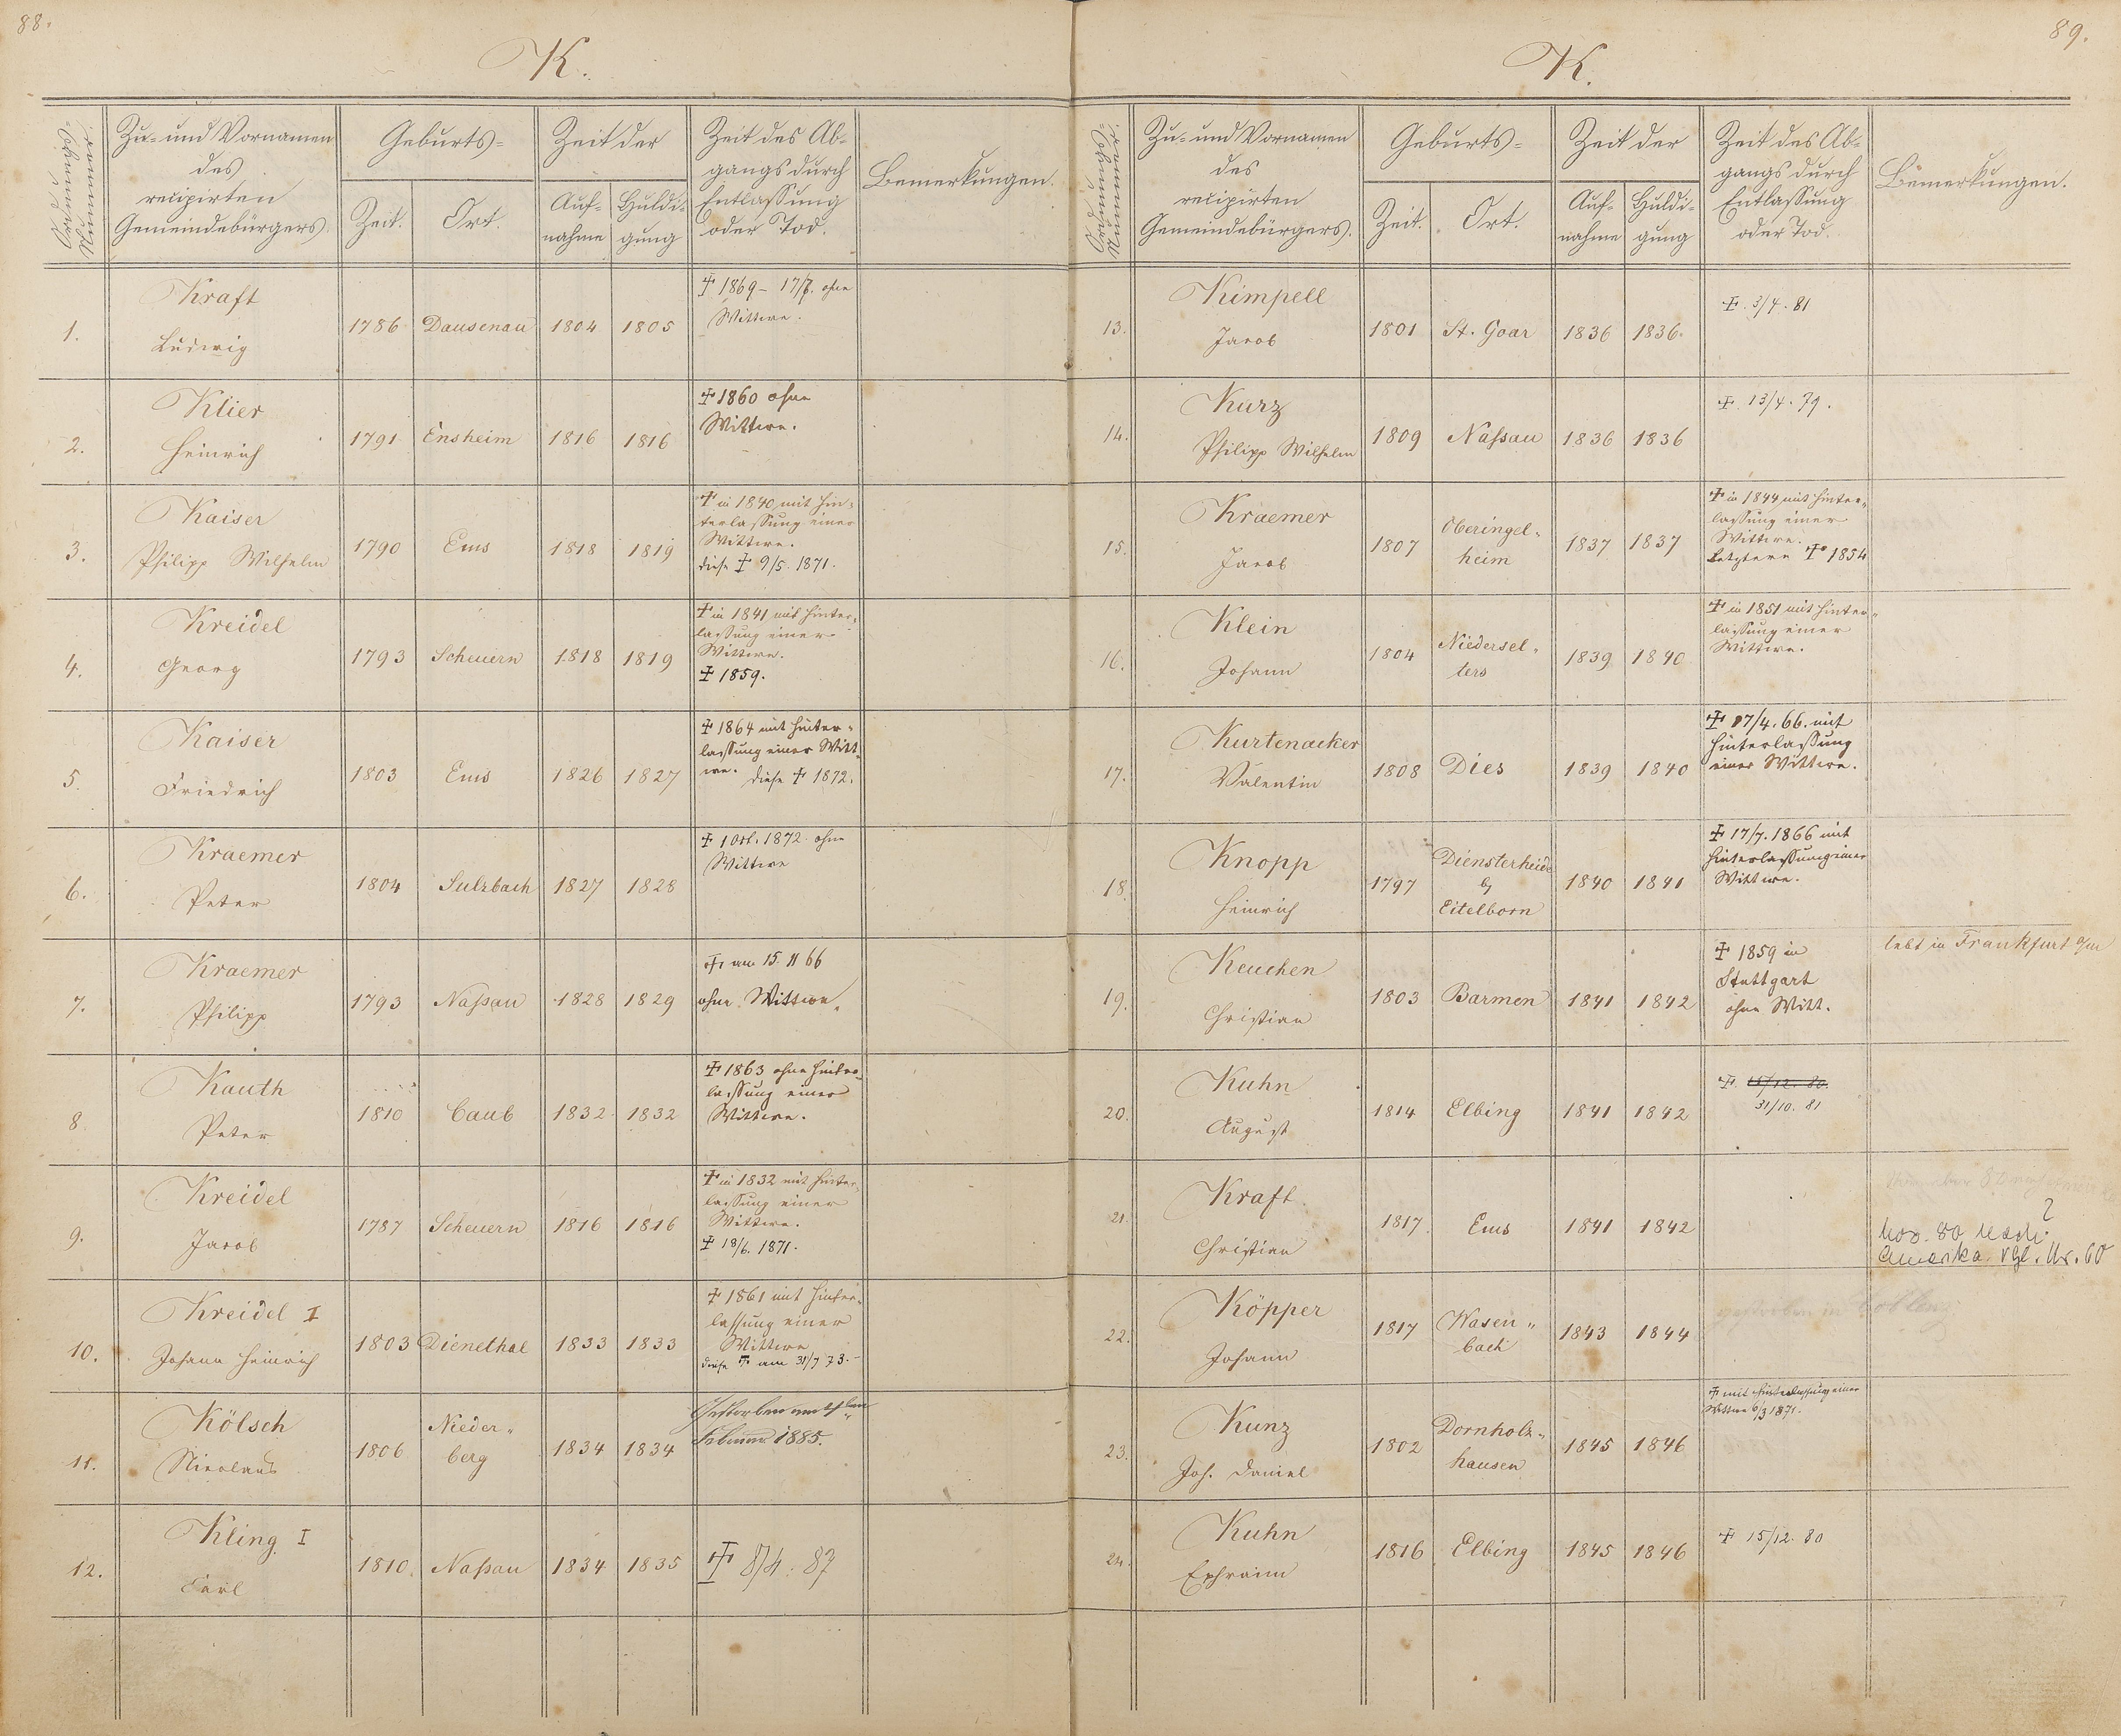 88.
K.
Ordnungs-
Nummer.
Zu- und Vornamen
des
recipirten
Gemeindebürgers.
Geburts-
Zeit.
Ort.
Zeit der
Auf-
nahme
Huldi-
gung
Zeit des Ab-
gangs durch
Entlassung
oder Tod.
Bemerkungen.
1.
Kraft
Ludwig
1786
Dausenau
1804
1805
† 1869 – 17/7. ohne
Wittwe.
2.
Klier
Heinrich
1791
Ensheim
1816
1816
† 1860 ohne
Wittwe.
3.
Kaiser
Philipp Wilhelm
1790
Ems
1818
1819
† in 1840 mit Hin-
terlaßung einer
Wittwe.
diese † 9/5. 1871.
4.
Kreidel
Georg
1793
Scheuern
1818
1819
† in 1841 mit Hinter-
laßung einer
Wittwe.
† 1859.
5.
Kaiser
Friedrich
1803
Ems
1826
1827
† 1864 mit Hinter-
laßung einer Witt-
we. diese † 1872.
6.
Kraemer
Peter
1804
Sulzbach
1827
1828
† 1 Oct. 1872 ohne
Wittwe
7.
Kraemer
Philipp
1793
Naßau
1828
1829
† am 15. 11 66
ohne Wittwe.
8
Kauth
Peter
1810
Caub
1832
1832
† 1863 ohne Hinter-
laßung einer
Wittwe.
9.
Kreidel
Jacob
1787
Scheuern
1816
1816
† in 1832 mit Hinter-
laßung einer
Wittwe.
† 18/6. 1871.
10.
Kreidel I
Johann Heinrich
1803
Dienethal
1833
1833
† 1861 mit Hinter-
laßung einer
Wittwe
diese † am 31/7 73.
11.
Kölsch
Nicolaus
1806
Nieder-
berg
1834
1834
Gestorben am
Februar 1885.
12.
Kling I
Carl
1810.
Naßau
1834
1835
† 8/4. 87
89.
K.
Ordnungs-
Nummer.
Zu- und Vornamen
des
recipirten
Gemeindebürgers.
Geburts-
Zeit.
Ort.
Zeit der
Auf-
nahme
Huldi-
gung
Zeit des Ab-
gangs durch
Entlassung
oder Tod.
Bemerkungen.
13.
Kimpell
Jacob
1801
St. Goar
1836
1836.
† 3/4. 81
14.
Kurz
Philipp Wilhelm
1809
Naßau
1836
1836
† 13/4. 79.
15.
Kraemer
Jacob
1807
Oberingel-
heim
1837
1837
† in 1844 mit Hinter-
laßung einer
Wittwe.
Letztere † 1854
16.
Klein
Johann
1804
Niedersel-
ters
1839
1840
† in 1851 mit Hinter-
laßung einer
Wittwe.
17.
Kurtenacker
Valentin
1808
Dies
1839
1840
† 17/4. 66. mit
Hinterlaßung
einer Wittwe.
18.
Knopp
Heinrich
1797
Diensterheide
bj
Eitelborn
1840
1841
† 17/7. 1866 mit
Hinterlaßung einer
Wittwe.
19.
Keuchen
Christian
1803
Barmen
1841
1842
† 1859 in
Stuttgart
ohne Witt.
lebt in Frankfurt a/m
20.
Kuhn
August
1814
Elbing
1841
1842
† 15/12. 80.
31/10. 81
21.
Kraft.
Christian
1817.
Ems
1841
1842
?
Nov. 80 nach
Amerika vgl. Nr. 60
22.
Köpper
Johann
1817
Wasen-
bach
1843
1844
gestorben in Coblenz
23.
Kunz
Joh. Daniel
1802
Dornholz-
hausen
1845
1846
† mit Hinterlaßung einer
Wittwe 6/3 1871.
24.
Kuhn
Ephraim
1816
Elbing
1845
1846
† 15/12. 80